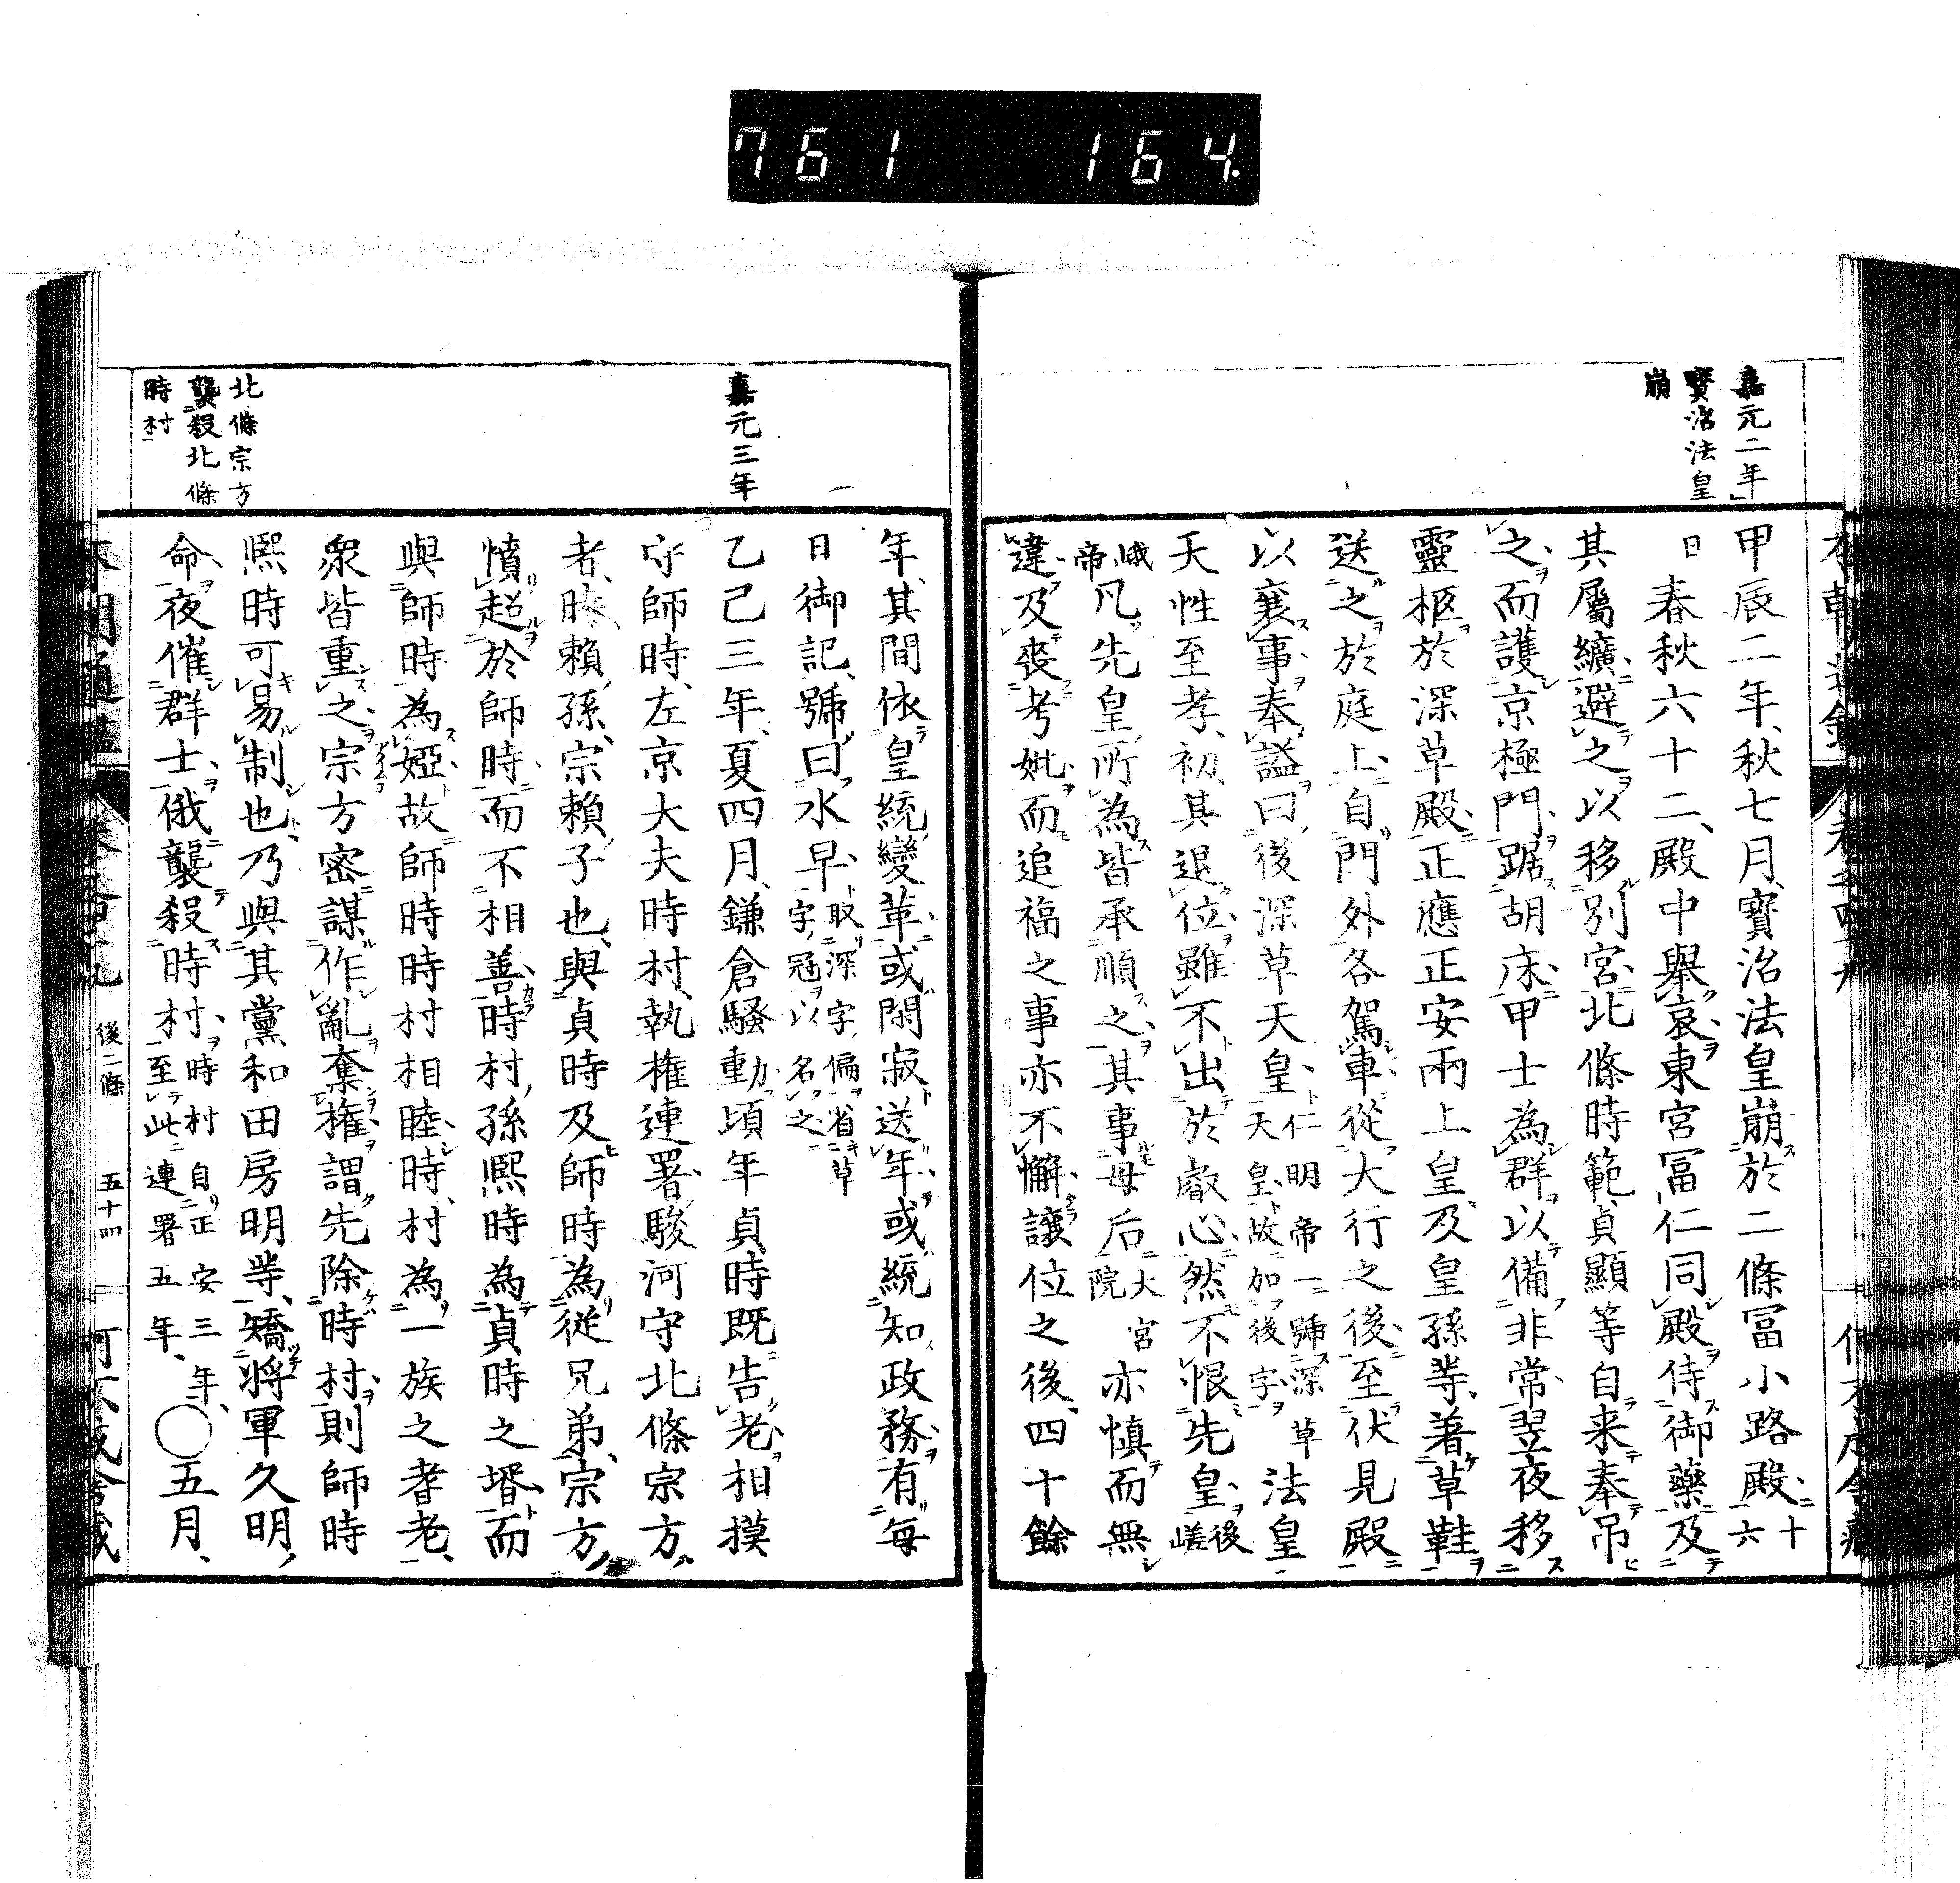 761 164
嘉元二年
寶治法皇
崩
甲辰二年、秋七月、寶治法皇崩於二條冨小路殿、十六
日春秋六十二、殿中舉哀、東宮冨仁同殿侍御藥、及
其屬纊避之、以移別宮、北條時範、貞顯等自来奉吊
之、而護京極門、踞胡床、甲士為群、以備非常、翌夜移
靈柩於深草殿、正應正安兩上皇、及皇孫等、著草鞋
送之於庭上、自門外各駕車從、大行之後至伏見殿
以襄事、奉謚曰、後深草天皇、仁明帝一號深草天皇、故加後字法皇
天性至孝、初其退位、雖不出於叡心、然不恨先皇、後嵯
峨帝凡先皇所為、皆承順之、其事母后大宮院亦慎而無
違、及喪考妣、而追福之事亦不懈、讓位之後、四十餘
嘉元三年
北條宗方
襲殺北條
時村
年、其間依皇統變革、或閑寂送年、或統知政務、有每
日御記、號曰水早、取深字偏、省草字冠、以名之
乙巳三年、夏四月、鎌倉騷動、頃年貞時既告老、相摸
守師時、左京大夫時村、執權連署、駿河守北條宗方、
者、時賴孫、宗賴子也、與貞時及師時為從兄弟、宗方、
憤超於師時、而不相善、時村孫熙時為貞時之壻、而
與師時為婭、故師時時村相睦、時村為一族之耆老、
衆皆重之、宗方密謀作亂奪權、謂先除時村、則師時
熙時可易制也、乃與其黨和田房明等、矯將軍久明
命、夜催群士、俄襲殺時村、時村自正安三年、至此連署五年、○五月、
後二條 五十四